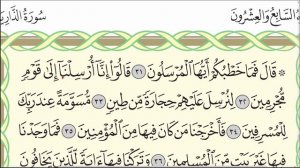 سُورَةُ الذَّارِيَ
السَّابِعُ وَالْعِشْرُونَ
۞ قَالَ فَمَا خَطْبُكُمْ أَيُّهَا ٱلْمُرْسَلُونَ ٣١ قَالُوٓا۟ إِنَّآ أُرْسِلْنَآ إِلَىٰ قَوْمٍ
مُّجْرِمِينَ ٣٢ لِنُرْسِلَ عَلَيْهِمْ حِجَارَةً مِّن طِينٍ ٣٣ مُّسَوَّمَةً عِندَ رَبِّكَ
لِلْمُسْرِفِينَ ٣٤ فَأَخْرَجْنَا مَن كَانَ فِيهَا مِنَ ٱلْمُؤْمِنِينَ ٣٥ فَمَا وَجَدْنَا
فِيهَا غَيْرَ بَيْتٍ مِّنَ ٱلْمُسْلِمِينَ ٣٦ وَتَرَكْنَا فِيهَآ ءَايَةً لِّلَّذِينَ يَخَافُونَ